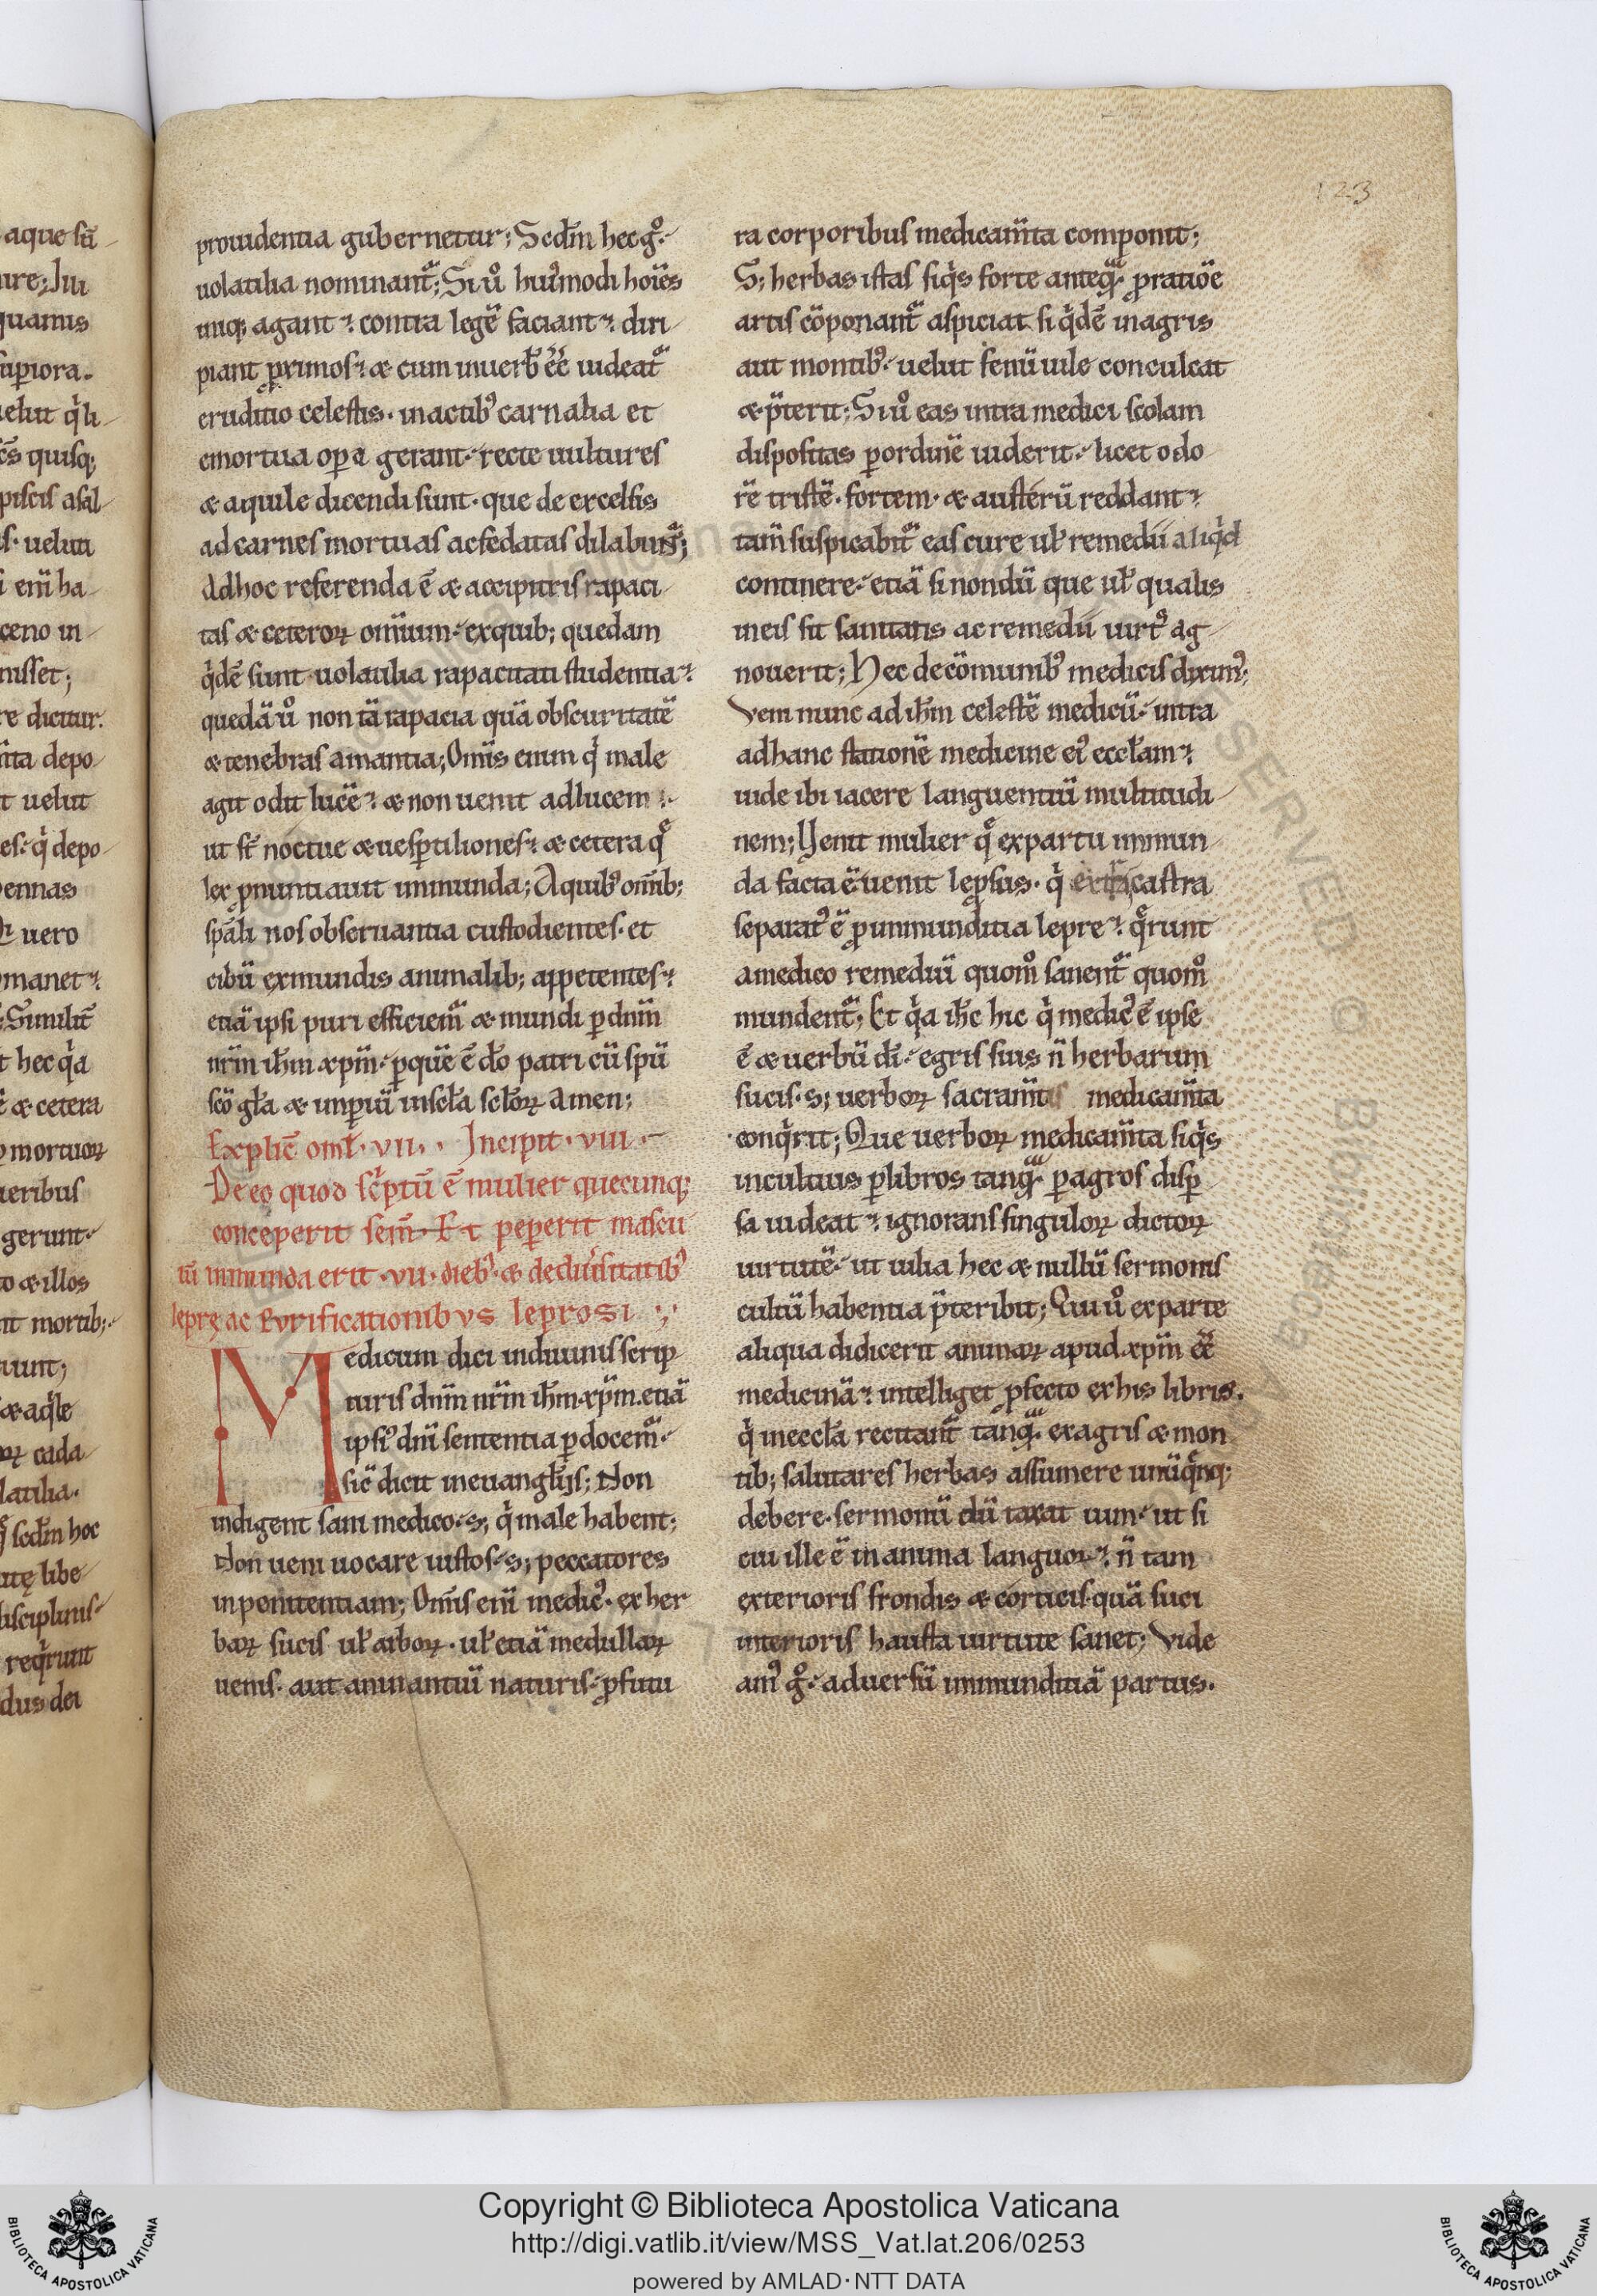 123
aque sā
ure; Iu
quamis
supiora.
uelut q̍ li
quisq;
piscis asal
s. uelut
i enī ha
ceno in
nisset;
re dicitur.
m̄ta depo
t uelut
es. q̍ depo
ennas
uero
manet.
Similit̄
t hec q̍a
æ cetera
mortuoꝝ
ueribus
gerunt.
o æ illos
nt mortib;
uunt;
æ aq̍le
oꝝ cada
latilia.
scdm̄ hoc
utę libe
disciplinis
req̍runt
dus dei
prouidentia gubernetur; Scdm̄ hec g°.
uolatilia nominant᷑; Si u° hui᷒modi hoīes
iniq; agant. contra legē faciant. diri
piant ꝓximos. æ cum in uerb̄ eē uideat᷑
eruditio celestis. in actib᷒ carnalia et
emortua opa gerant. recte uultures
æ aquile dicendi sunt. que de excelsis
ad carnes mortuas ac fedatas dilabunt᷑;
Ad hoc referenda ē æ accipitris rapaci
tas æ ceteroꝝ omīum. ex quib; quedam
q̍dē sunt uolatilia rapacitati studentia.
quedā u° non tā rapacia quā obscuritatē
æ tenebras amantia; Om̄is enim q̍ male
agit odit lucē. æ non uenit ad lucem.
ut st̄ noctue æ uesꝑtiliones. æ cetera q̄
lex ꝓnuntiauit inmunda; A quib᷒ om̄ib;
spāli nos obseruantia custodientes. et
cibū ex mundis animalib; appetentes.
etiā ipsi puri efficiem᷒ æ mundi ꝑ dn̄m
nr̄m ih̄m xp̄m. ꝑ quē ē dō patri cū spū
scō glā æ imꝑiū in scła scłoꝝ amen;
Explic̄ oml̄. vii. Incipit. viii.
De eo quod sc̍ptū ē mulier quecunq;
conceperit sem̄. Et pepererit mascu
lū inmunda erit. vii. dieb᷒. æ de diu̍sitatib᷒
leprę ac purificationibus leprosi
Medicum dici in diuinis scrip
turis dn̄m nr̄m ih̄m xp̄m. etiā
ipsi᷒ dn̄i sententia ꝑdocem᷒.
sic̄ dicit in euanglijs; Non
indigent sani medico. s; q̍ male habent;
Non ueni uocare iustos. s; peccatores
in penitentiam; Om̄is enī medic᷒. ex her
baꝝ sucis uł arboꝝ. uł etiā medullaꝝ
uenis. aut animantiū naturis. ꝓfutu
ra corporibus medicam̄ta componit;
S; herbas istas siq̍s forte anteq̄ᷓ. ꝓ ratiōe
artis cōponant᷑ aspiciat. si q̍dē in agris
aut montib᷒. uelut fenū uile conculcat
æ p̄terit; Si u° eas intra medici scolam
dispositas ꝑ ordinē uiderit. licet odo
rē tristē. fortem. æ austerū reddant.
tam̄ suspicabit᷑ eas cure uł remedii aliq̍d
continere. etiā si nondū que uł qualis
in eis sit sanitatis ac remedii uirt᷒ ag
nouerit; Hec de cōmunib᷒ medicis dixim᷒;
Veni nunc ad ih̄m celestē medicū. intra
ad hanc stationē medicine ei᷒ eccłam.
uide ibi iacere languentiū multitudi
nem; Uenit mulier q̄ ex partu inmun
da facta ē uenit leꝓsus. q̍ extra castra
separat᷒ ē ꝓ inmunditia lepre. q̄runt
a medico remediū quom° sanent᷑ quom°
mundent᷑; Et q̍a ih̄c hic q̍ medic᷒ ē ipse
ē æ uerbū dī. egris suis n̄ herbarum
sucis. s; uerboꝝ sacram̄tis medicam̄ta
conq̍rit; Que uerboꝝ medicam̄ta siq̍s
incultius ꝑ libros tanq̄ᷓ. ꝑ agros disꝑ
sa uideat. ignorans singuloꝝ dictoꝝ
uirtutē. ut uilia hec æ nullū sermonis
cultū habentia p̄teribit; Qui u° ex parte
aliqua didicerit animaꝝ apud xp̄m eē
medicinā. intelliget ꝓfecto ex his libris.
q̍ in eccła recitant᷑ tanq̄ᷓ. ex agris æ mon
tib; salutares herbas assumere unūq̄nq;
debere. sermonū dū taxat uim. ut si
cui ille ē in anima languor. n̄ tam
exterioris frondis æ corticis. quā suci
interioris hausta uirtute sanet; Vide
am᷒ g°. aduersū inmunditiā partus.
Copyright © Biblioteca Apostolica Vaticana
http://digi.vatlib.it/view/MSS_Vat.lat.206/0253
powered by AMLAD·NTT DATA
BIBLIOTECA APOSTOLICA VATICANA
BIBLIOTECA APOSTOLICA VATICANA